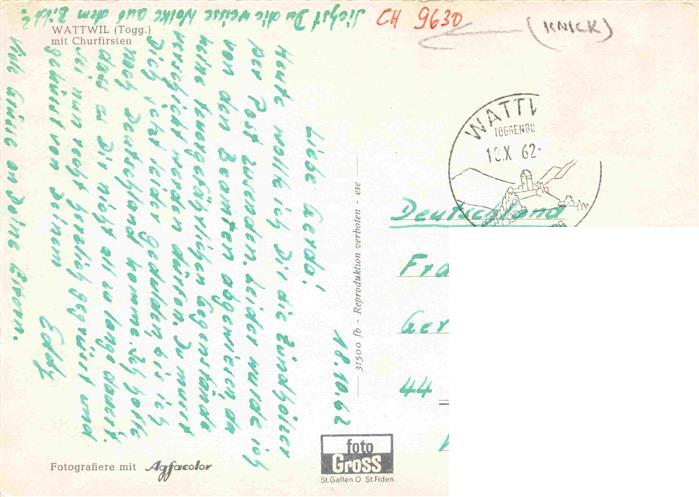 WATTWIL (Togg.)
mit Churfirsten
Siehst Du die weisse Wolke auf dem Bild?
CH 9630
(KNICK)
18.10.62
Liebe Gerda!
Heute wollte ich Dir die Zündhölzer
per Post zusenden, leider wurde ich
von den Beamten abgewiesen, da
keine feuergefährlichen Gegenstände
verschickt werden dürfen. Du musst
Dich jetzt leider gedulden, bis ich
nach Deutschland komme. Ich hoffe
dass es Dir nicht all zu lange dauert.
Sei nun recht herzlich gegrüsst und
geküsst von Deinem
Viele Grüsse an Deine Eltern.
31500 fb - Reproduktion verboten - ese
WATTW
TOGGENBU
18.X 62-
Deutschland
Fra
Ger
44
Fotografiere mit Agfacolor
foto
Gross
St.Gallen O St.Fiden